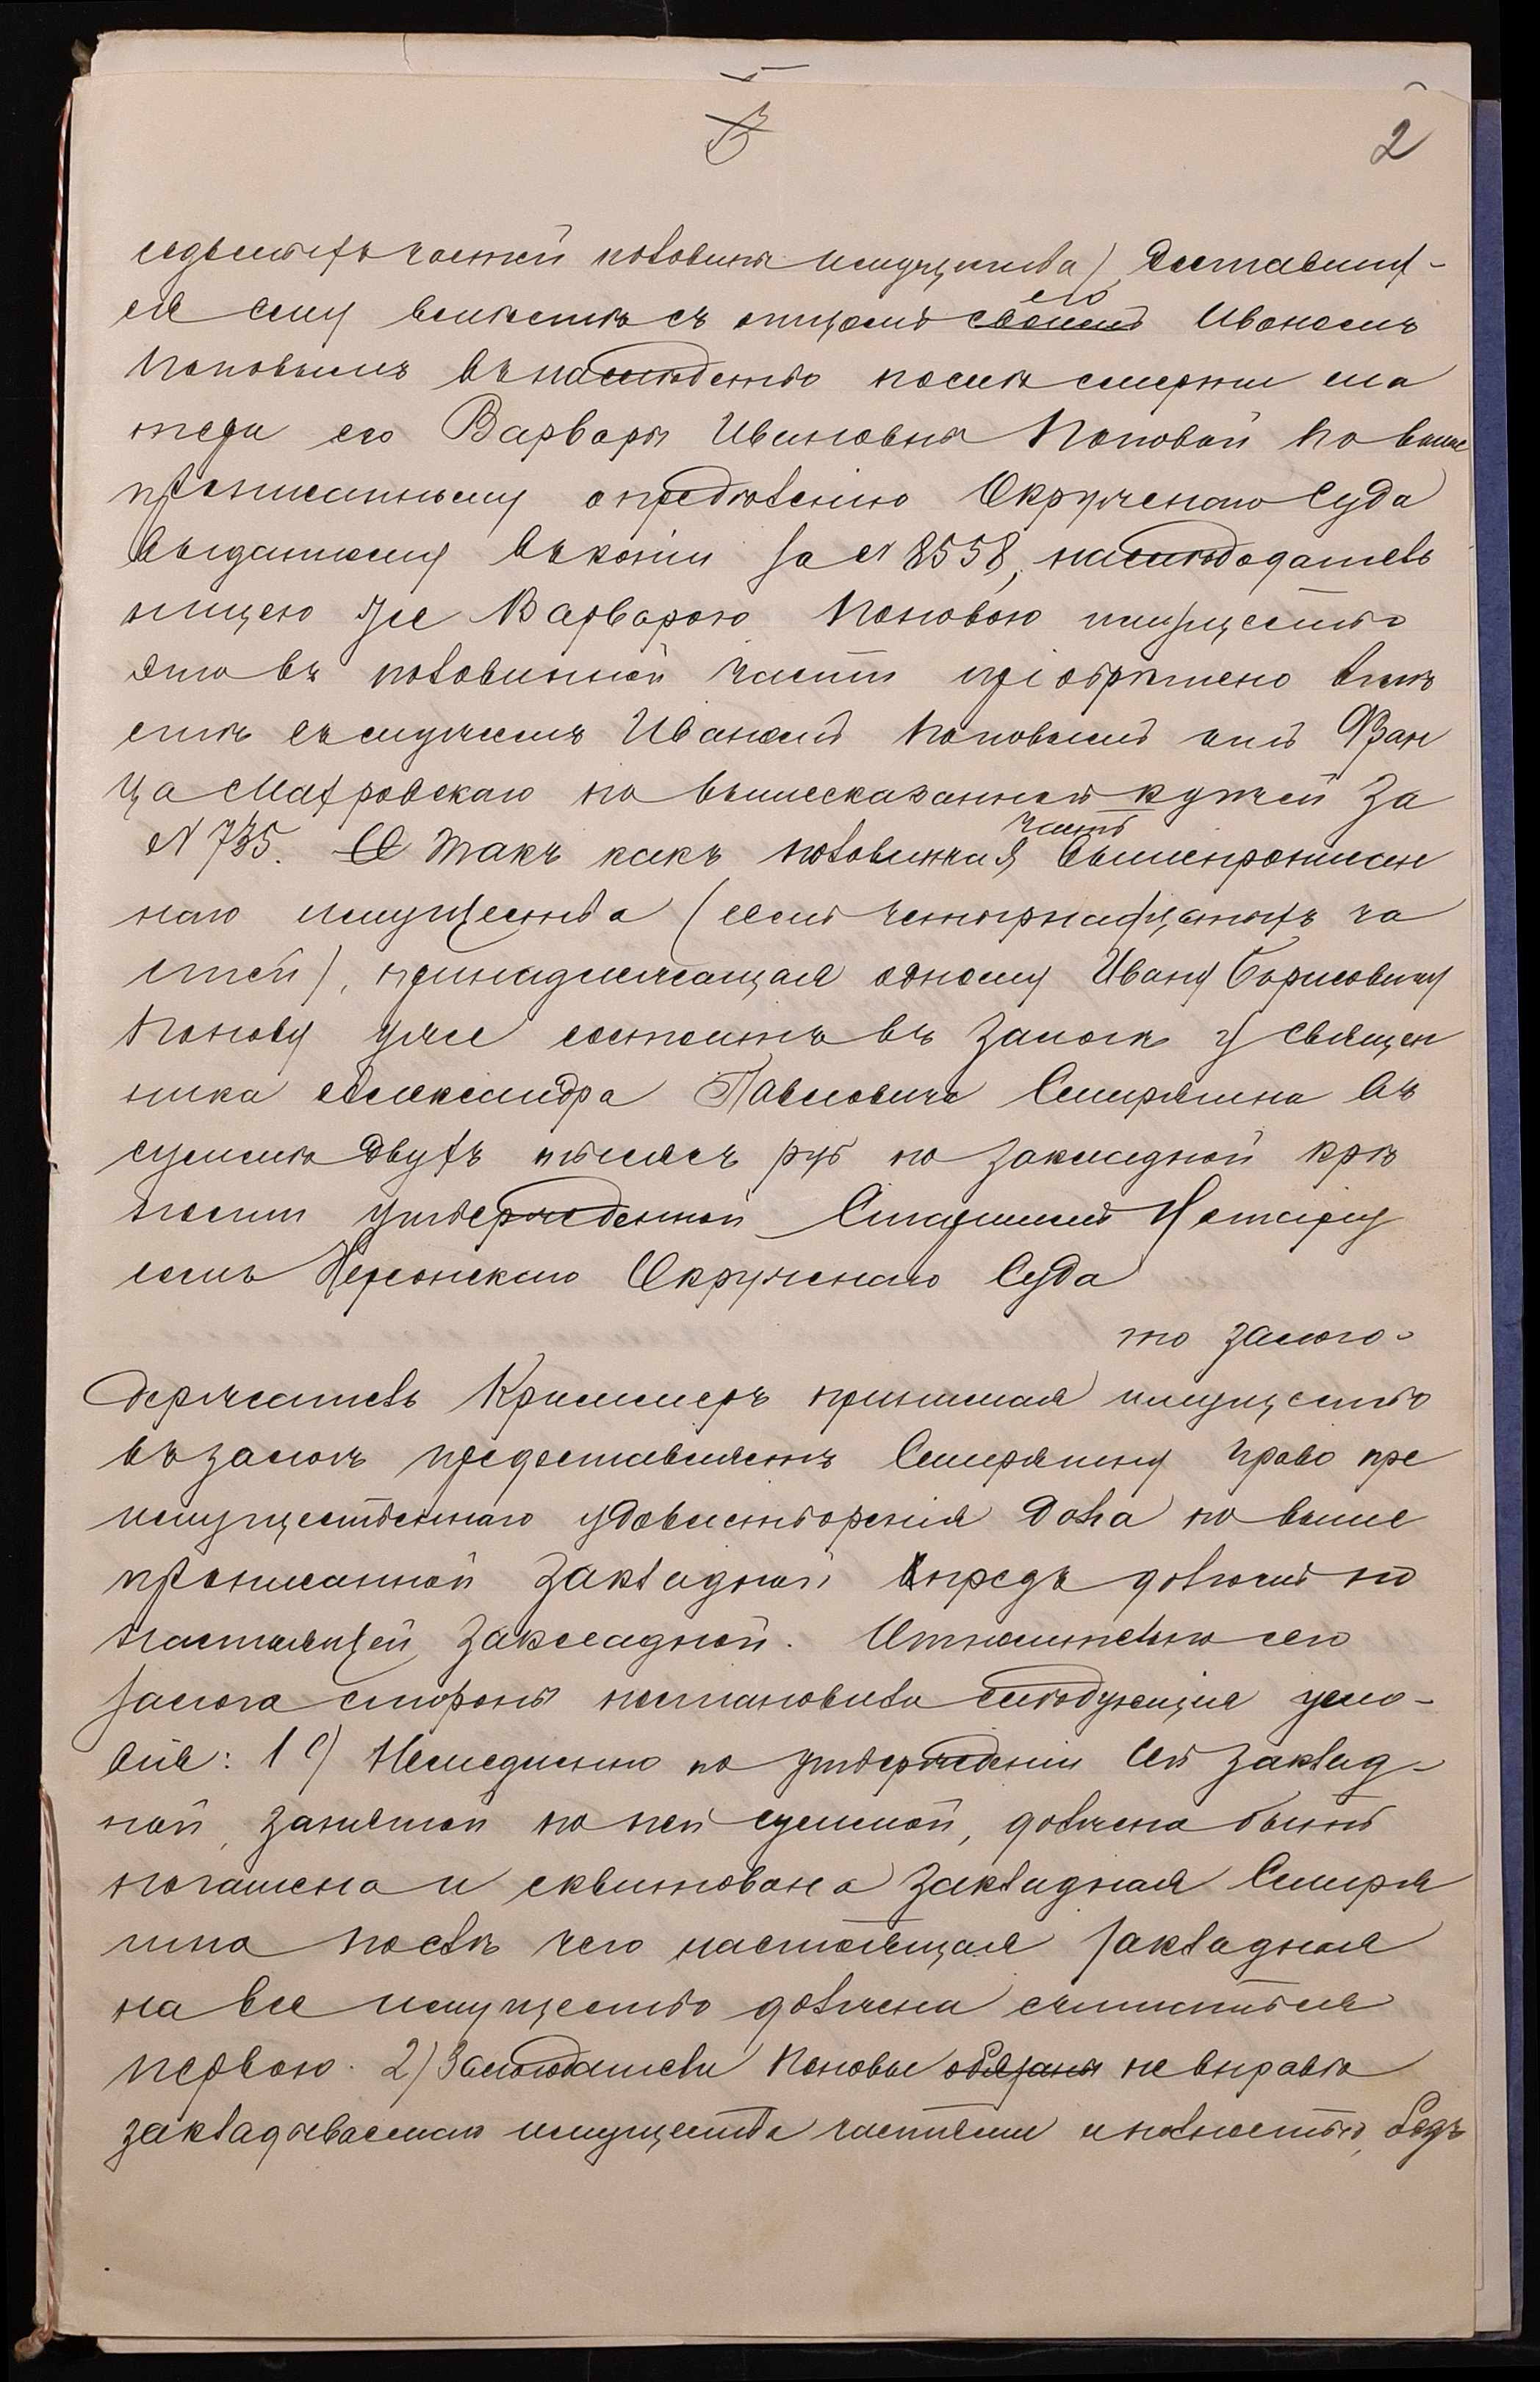 2
седьмыхъ частей половины имущества) доставших-
ся ему вмѣстѣ съ отцомъ своимъ его Иваномъ
Поповымъ въ наслѣдство послѣ смерти ма
тери его Варвары Ивановны Поповой по выше
прописанному опредѣленію Окружнаго Суда
выданному въ копіи за № 8558, наслѣдодатель
ницею же Варварою Поповою имущество
это въ половинной части пріобрѣтено вмѣ
стѣ съ мужемъ Иваномъ Поповымъ отъ Фран
ца Махровскаго по вышесказанной купчей за
№ 735. А такъ какъ половинная часть вышепрописан
наго имущества (семь четырнадцатыхъ ча
стей), принадлежащая одному Ивану Борисовичу
Попову уже состоитъ въ залогѣ у Священ
ника Александра Павловича Смирягина въ
суммѣ двухъ тысячъ руб по закладной крѣ
пости утвержденной Старшимъ Нотаріу
сомъ Херсонскаго Окружнаго Суда
то залого-
держатель Криммеръ принимая имущество
въ залогъ предоставляетъ Смирягину право пре
имущественнаго удовлетворенія долга по выше
прописанной закладной впредь долгомъ по
настоящей закладной. Относительно сего
залога стороны постановили слѣдующія усло-
вія: 1е) Немедленно по утвержденіи сей заклад-
ной, занятой по ней суммой, должна быть
погашена и сквитована закладная Смиря
гина послѣ чего настоящая закладная
на все имущество должна считаться
первою. 2) Залогодатели Поповы обязаны не вправѣ
закладываемаго имущества частями и полностью, безъ